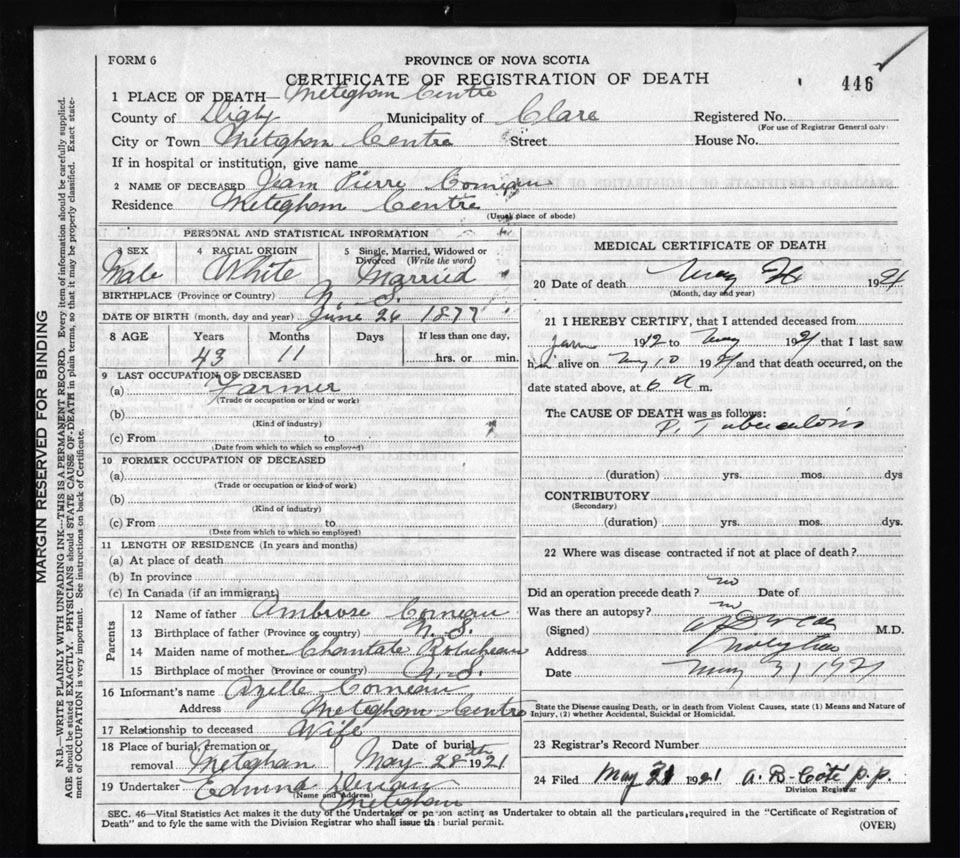 FORM 6
PROVINCE OF NOVA SCOTIA
CERTIFICATE OF REGISTRATION OF DEATH
446
1 PLACE OF DEATH— Meteghan Centre
County of Digby Municipality of Clare Registered No.
(For use of Registrar General only)
City or Town Meteghan Centre Street House No.
If in hospital or institution, give name
2 NAME OF DECEASED Jean Pierre Comeau
Residence Meteghan Centre
(Usual place of abode)
PERSONAL AND STATISTICAL INFORMATION
3 SEX 4 RACIAL ORIGIN 5 Single, Married, Widowed or Divorced (Write the word)
Male White Married
BIRTHPLACE (Province or Country) N. S.
DATE OF BIRTH (month, day and year) June 26 1877
8 AGE Years Months Days If less than one day,
43 11 hrs. or min.
9 LAST OCCUPATION OF DECEASED
(a) Farmer
(Trade or occupation or kind or work)
(b)
(Kind of industry)
(c) From to
(Date from which to which so employed)
10 FORMER OCCUPATION OF DECEASED
(a)
(Trade or occupation or kind of work)
(b)
(Kind of industry)
(c) From to
(Date from which to which so employed)
11 LENGTH OF RESIDENCE (In years and months)
(a) At place of death
(b) In province
(c) In Canada (if an immigrant)
Parents
12 Name of father Ambrose Comeau
13 Birthplace of father (Province or country) N. S.
14 Maiden name of mother
15 Birthplace of mother (Province or country) N. S.
16 Informant's name Comeau
Address Meteghan Centre
17 Relationship to deceased Wife
18 Place of burial, cremation or removal Meteghan Date of burial May 28th 1921
19 Undertaker
(Name and Address)
Meteghan
MEDICAL CERTIFICATE OF DEATH
20 Date of death May 26 1921
(Month, day and year)
21 I HEREBY CERTIFY, that I attended deceased from
1912 to May 1921 that I last saw
him alive on May 10 1921 and that death occurred, on the
date stated above, at 6 a m.
The CAUSE OF DEATH was as follows:
P. Tuberculosis
(duration) yrs. mos. dys
CONTRIBUTORY
(Secondary)
(duration) yrs. mos. dys.
22 Where was disease contracted if not at place of death?
Did an operation precede death? no Date of
Was there an autopsy? no
(Signed) M.D.
Address
Date May 31, 1921
State the Disease causing Death, or in death from Violent Causes, state (1) Means and Nature of
Injury, (2) whether Accidental, Suicidal or Homicidal.
23 Registrar's Record Number
24 Filed May 31 1921 A. B. Côté p.p.
Division Registrar
SEC. 46—Vital Statistics Act makes it the duty of the Undertaker or person acting as Undertaker to obtain all the particulars required in the "Certificate of Registration of
Death" and to fyle the same with the Division Registrar who shall issue the burial permit.
(OVER)
MARGIN RESERVED FOR BINDING
N.B.—WRITE PLAINLY, WITH UNFADING INK—THIS IS A PERMANENT RECORD. Every item of information should be carefully supplied.
AGE should be stated EXACTLY. PHYSICIANS should STATE CAUSE OF DEATH in plain terms, so that it may be properly classified. Exact state-
ment of OCCUPATION is very important. See instructions on back of Certificate.